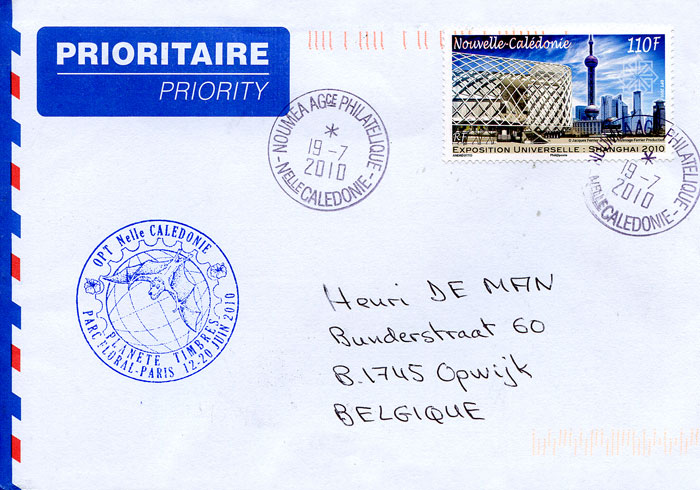 PRIORITAIRE
PRIORITY
Nouvelle-Calédonie 110F
RF
EXPOSITION UNIVERSELLE : SHANGHAI 2010
NOUMEA AGCE PHILATELIQUE
*
19-7
2010
- NELLE CALEDONIE -
NOUMEA AGCE PHILATELIQUE
*
19-7
2010
NELLE CALEDONIE -
OPT Nelle CALEDONIE
PLANETE TIMBRES
PARC FLORAL-PARIS 12-20 JUIN 2010
Henri DE MAN
Bunderstraat 60
B.1745 Opwijk
BELGIQUE